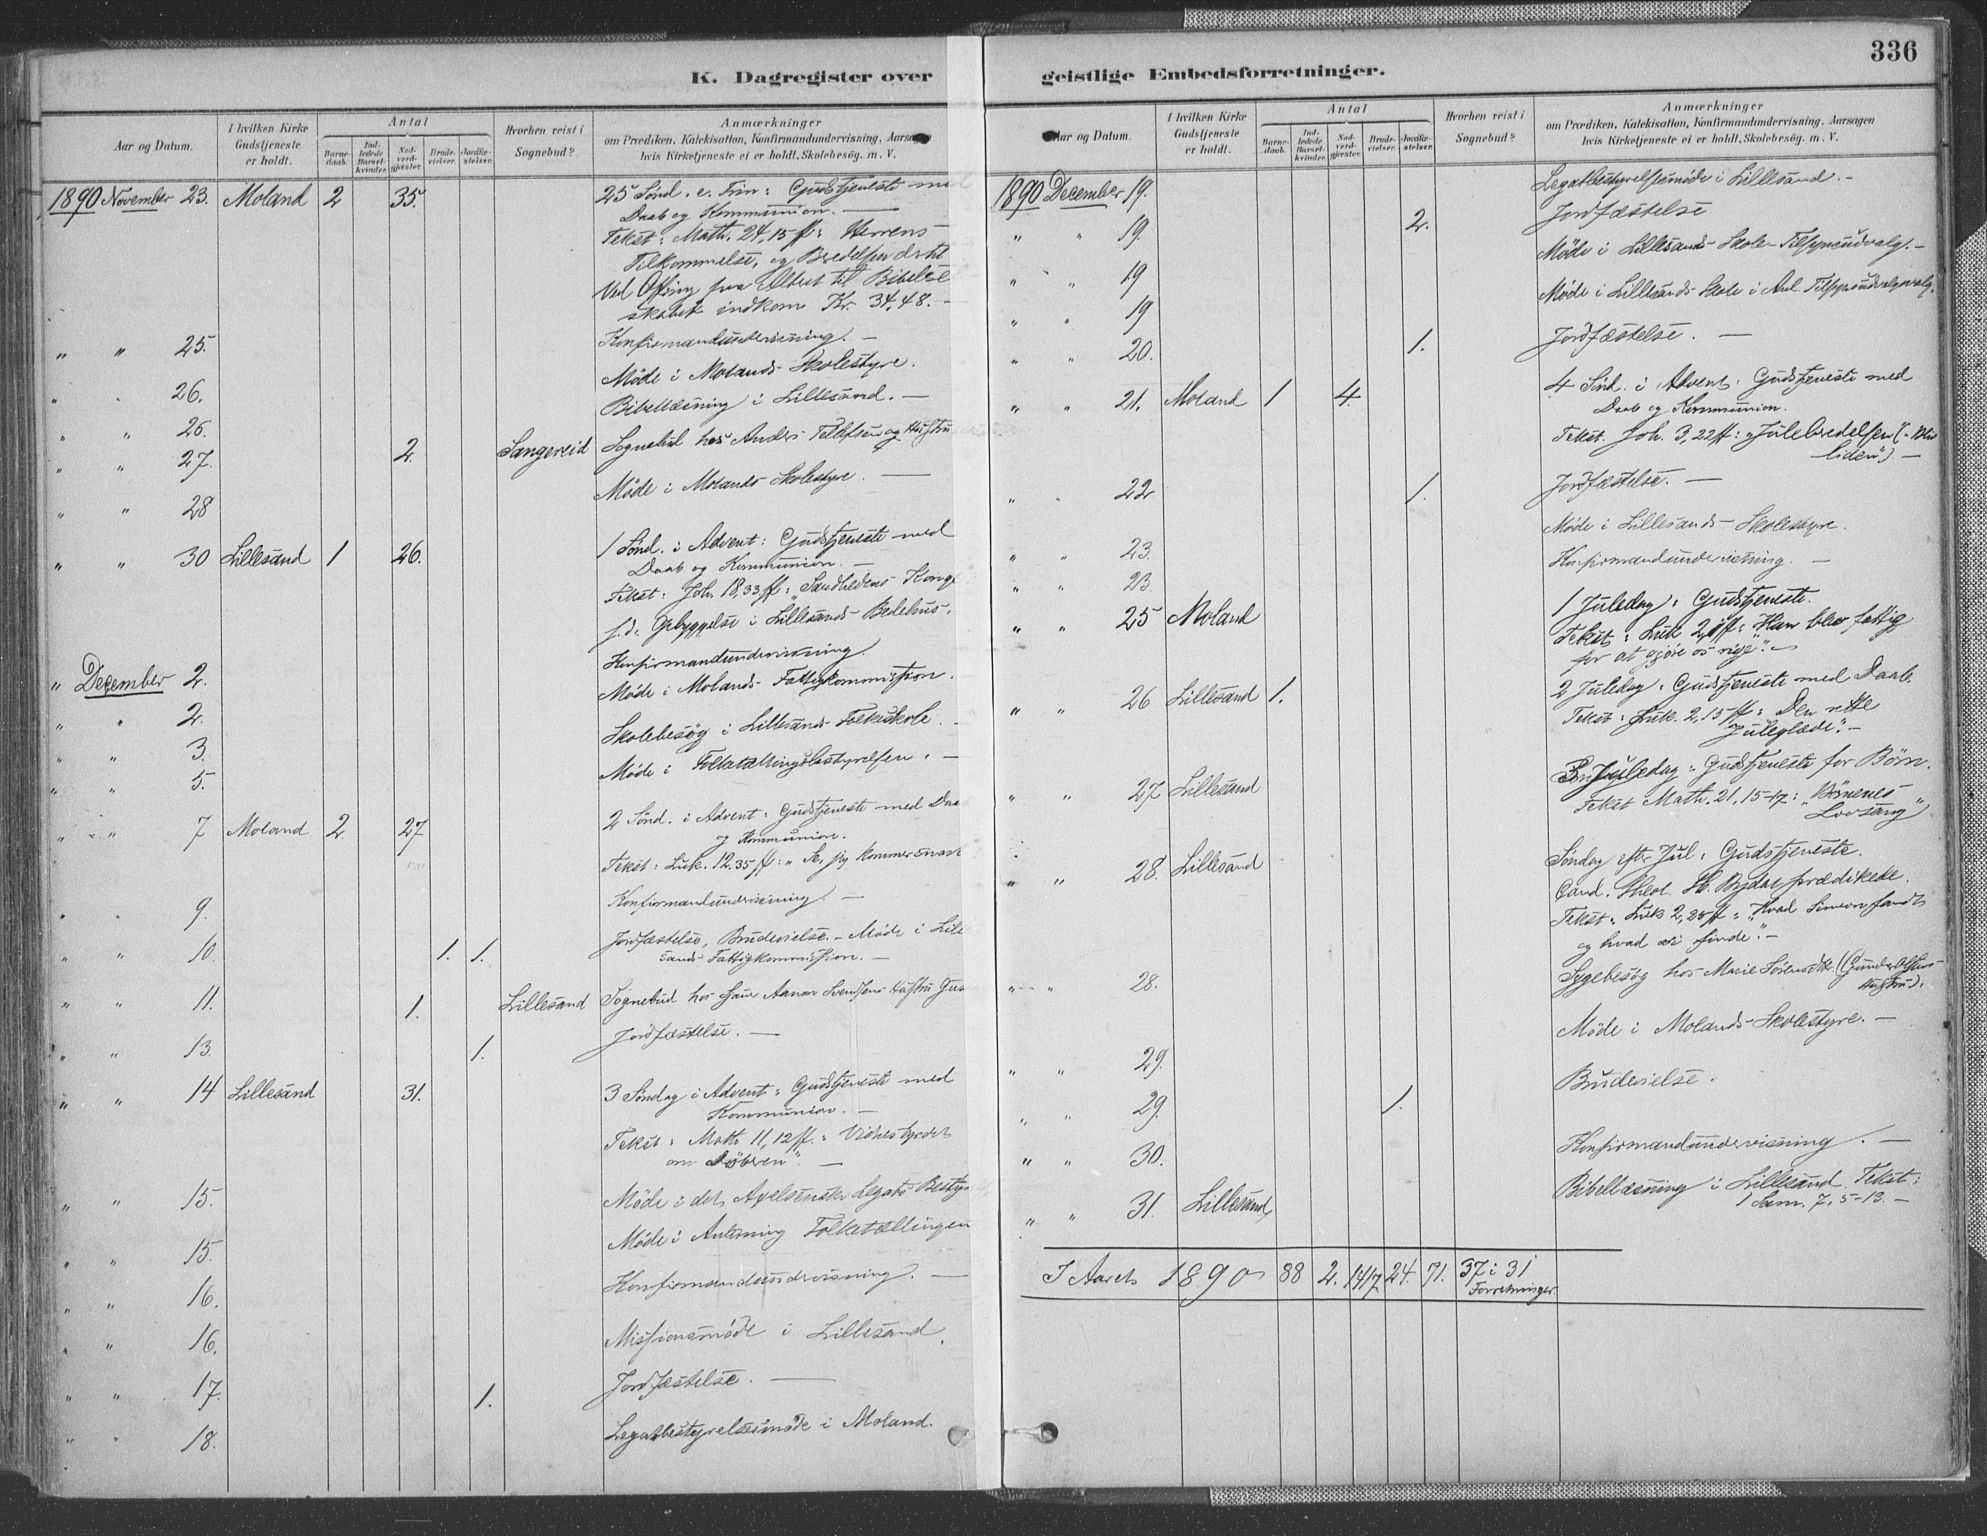 336
K. Dagregister over geistlige Embedsforretninger.
Aar og Datum.
I hvilken Kirke Gudstjeneste er holdt.
Antal
Barnedaab.
Indledede Barselkvinder.
Nadverdgjester.
Brudevielser.
Jordfæstelser.
Hvorhen reist i Sognebud?
Anmærkninger
om Prædiken, Katekisation, Konfirmandundervisning, Aarsagen
hvis Kirketjeneste ei er holdt, Skolebesøg. m. V.
1890 November 23. Moland 2 35. 25 Sønd. e. Trin: Gudstjeneste med
Daab og Kommunion. —
Tekst: Math. 24,15 ff: Herrens
Tilkommelse, og
Ved Offring paa Alteret til Bibelsel
skabet indkom Kr. 34,48. -
" " 25. Konfirmandundervisning. -
Møde i Molands Skolestyre.
" " 26. Bibellæsning i Lillesand. -
" " 26.
" " 27. 2. Sangereid Sognebud hos Anders Tellefsen og Hustru
" " 28 Møde i Molands Skolestyre. —
" " 30 Lillesand 1 26. 1 Sønd. i Advent: Gudstjeneste med
Daab og Kommunion. —
Tekst: Joh. 18,33 ff: "Sandhedens Konge
f.d: Opbyggelse i Lillesands Bedehus.
" December 2. Konfirmandundervisning.
" " 2. Møde i Molands Fattigkommission.
" " 3. Skolebesøg i Lillesands Folkeskole. -
" " 5. Møde i Folketællingsbestyrelsen. -
" " 7 Moland 2. 27 2 Sønd. i Advent: Gudstjeneste med Daab
og Kommunion.
Tekst: Luk. 12,35 ff: "Se, jeg kommer snart
" " 9. Konfirmandundervisning. —
" " 10. 1. 1. Jordfæstelse, Brudevielse. - Møde i Lille
sands Fattigkommission. -
" " 11. 1. Lillesand Sognebud hos Aanon Svendsens Hustru
" " 13. 1. Jordfæstelse. —
" " 14 Lillesand 31. 3 Søndag i Advent: Gudstjeneste med
Kommunion. —
Tekst: Math 11,12 ff: Vidnesbyrdet
om Døberen". —
" " 15. Møde i det Axelsenske Legats Bestyr
" " 15. Møde i Anledning Folketællingen
" " 16. Konfirmandundervisning. —
" " 16. Missionsmøde i Lillesand.
" " 17. 1. Jordfæstelse. —
" " 18. Legatbestyrelsesmøde i Moland.
Aar og Datum.
I hvilken Kirke Gudstjeneste er holdt.
Antal
Barnedaab.
Indledede Barselkvinder.
Nadverdgjester.
Brudevielser.
Jordfæstelser.
Hvorhen reist i Sognebud?
Anmærkninger
om Prædiken, Katekisation, Konfirmandundervisning, Aarsagen
hvis Kirketjeneste ei er holdt, Skolebesøg. m. V.
1890 December 19. Legatbestyrelsesmøde i Lillesand. -
" " 19. 2. Jordfæstelse
" " 19 Møde i Lillesands Skole-Tilsynsudvalg. -
" " 19 Møde i Lillesands Skole i Anl. Tilsynsudvalgsvalg.
" " 20. 1. Jordfæstelse. —
" " 21. Moland 1 4. 4 Sønd. i Advent: Gudstjeneste med
Daab og Kommunion.
Tekst: Joh. 3,22 ff: "Juleberedelsen
liden"). -
" " 22 1. Jordfæstelse. —
" " 23. Møde i Lillesands Skolestyre.
" " 23. Konfirmandundervisning. -
" " 25 Moland 1 Juledag: Gudstjeneste.
Tekst: Luk 2,1 ff: "Han blev fattig
for at gjøre os rige". -
" " 26 Lillesand 1. 2 Juledag: Gudstjeneste med Daab.
Tekst: Luk. 2,15 ff: Den rette
Juleglæde". -
" " 27 Lillesand 3 Juledag: Gudstjeneste for Børn.
Tekst Math. 21,15-17: "Børnenes
Lovsang"
" " 28. Lillesand Søndag efter Jul: Gudstjeneste.
Cand. theol. prædikede.
Tekst: Luk 2,25 ff "Hvad Simeon fandt
og hvad vi finde". -
" " 28. Sygebesøg hos Marie Sørensdtr. (Gunder Olsens
Hustru).
" " 29. Møde i Molands Skolestyre. -
" " 29. 1. Brudevielse.
" " 30. Konfirmandundervisning. —
" " 31. Lillesand Bibellæsning i Lillesand. Tekst:
1 Sam. 7,5-13. -
I Aaret 1890 88 2. 1417. 24. 71. 37 i 31
Forretninger